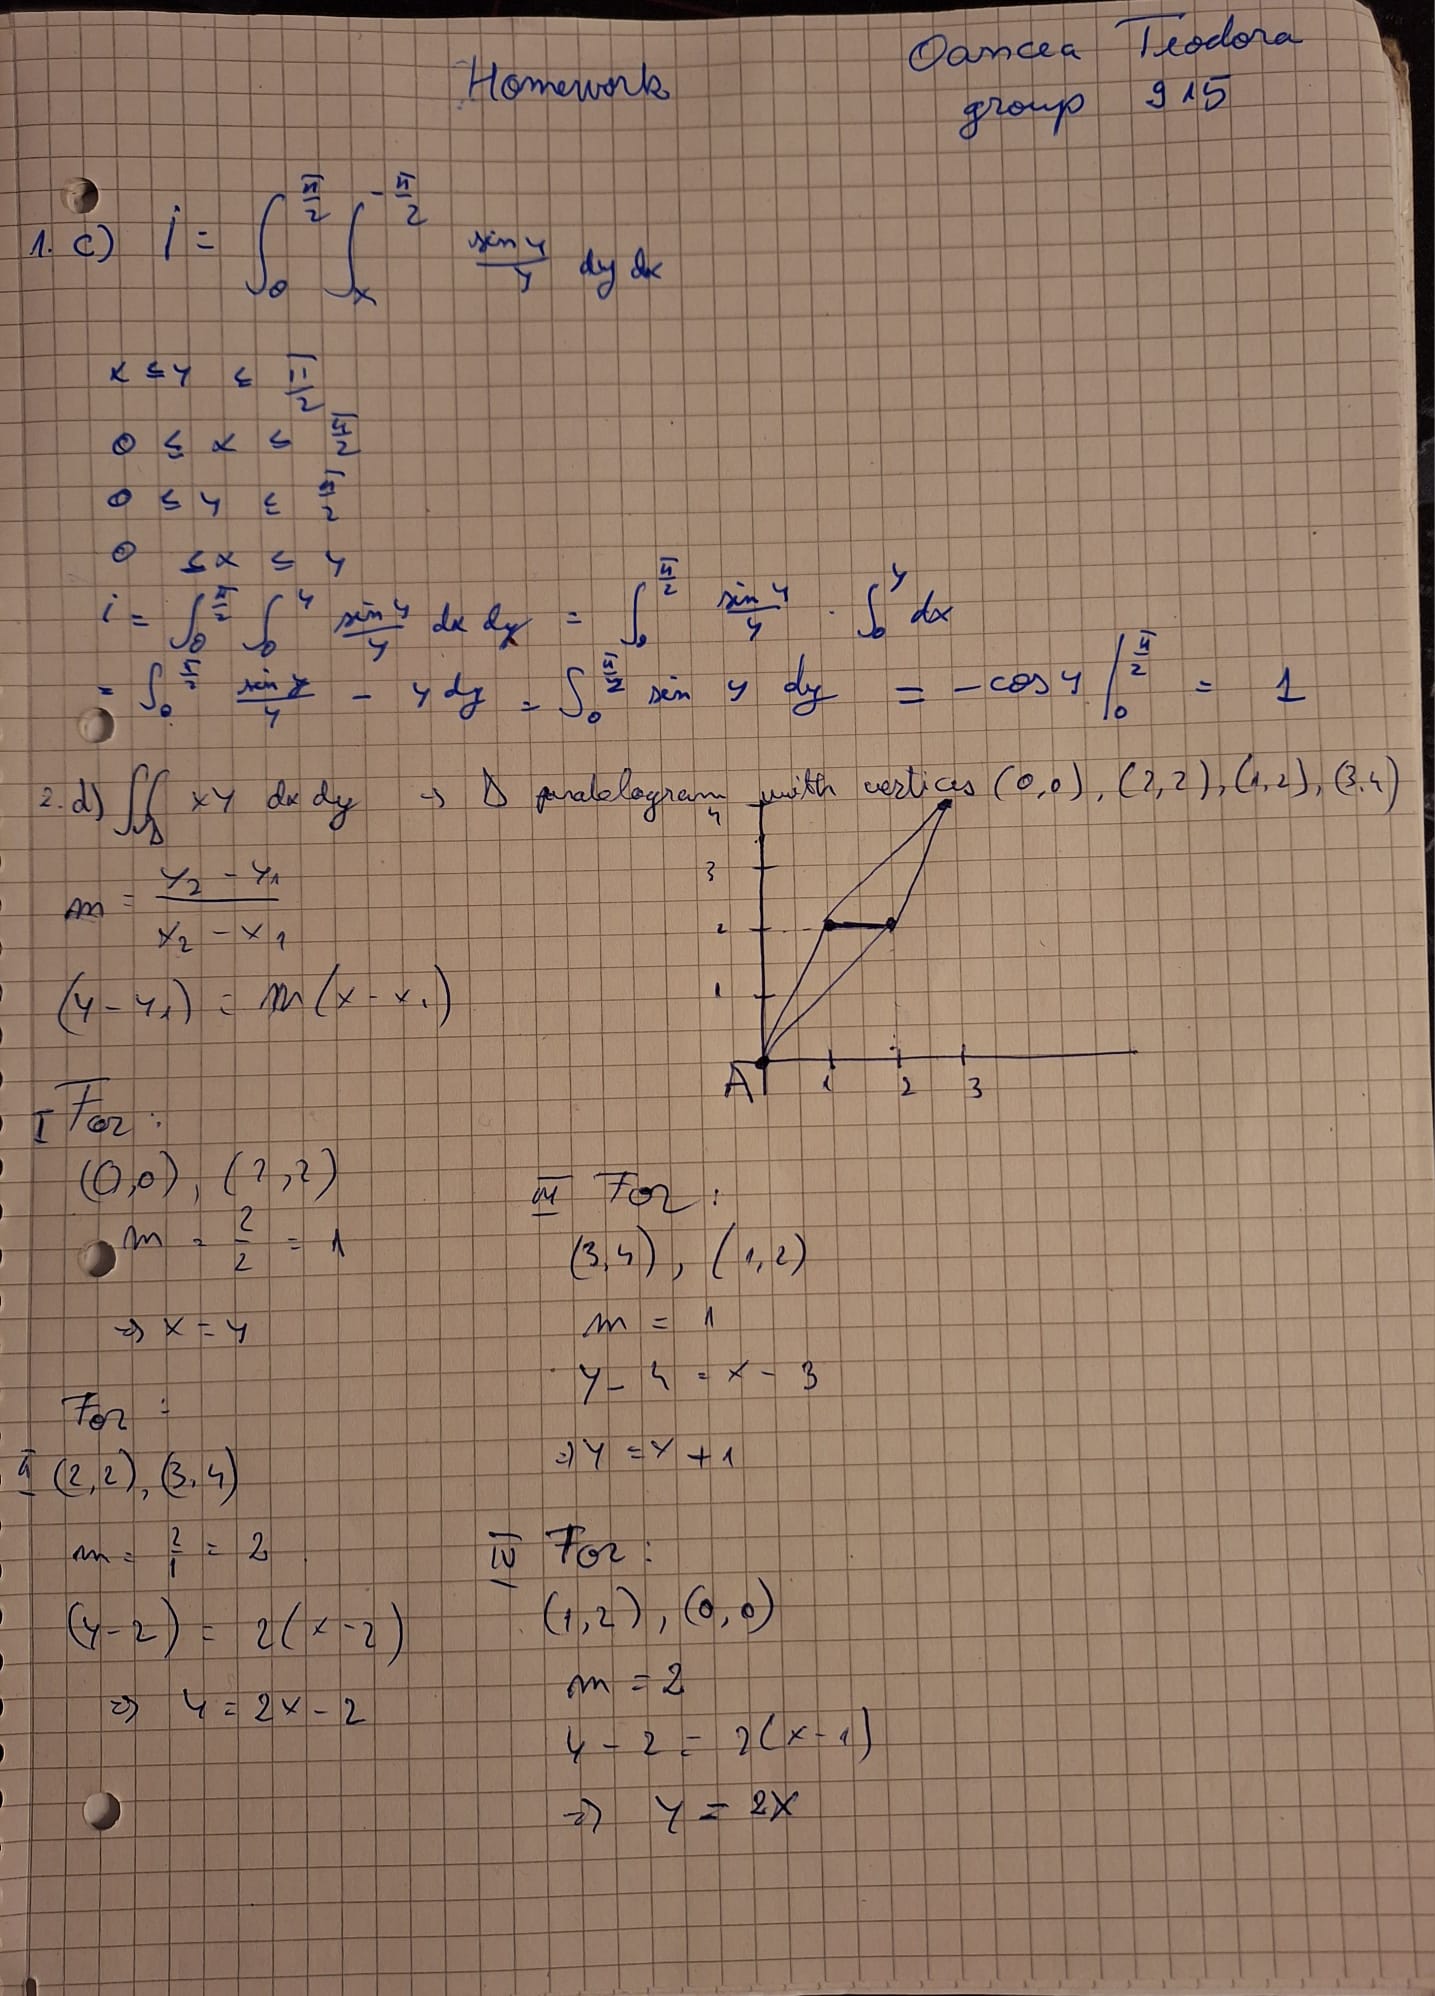 Homework
Oancea Teodora
group 915
1. c) i = ∫_0^{π/2} ∫_x^{-π/2} sin y / y dy dx
x ≤ y ≤ π/2
0 ≤ x ≤ π/2
0 ≤ y ≤ π/2
0 ≤ x ≤ y
i = ∫_0^{π/2} ∫_0^y sin y / y dx dy = ∫_0^{π/2} sin y / y · ∫_0^y dx
= ∫_0^{π/2} sin y / y - y dy = ∫_0^{π/2} sin y dy = -cos y |_0^{π/2} = 1
2. d) ∬_D xy dx dy → D paralelogram with vertices (0,0), (2,2), (1,2), (3,4)
4
3
2
1
A 1 2 3
m = (y2 - y1) / (x2 - x1)
(y - y1) = m(x - x1)
I For:
(0,0), (2,2)
m = 2/2 = 1
⇒ x = y
For:
II (2,2), (3,4)
m = 2/1 = 2
(y-2) = 2(x-2)
⇒ y = 2x - 2
III For:
(3,4), (1,2)
m = 1
y - 4 = x - 3
⇒ y = x + 1
IV For:
(1,2), (0,0)
m = 2
y - 2 = 2(x-1)
⇒ y = 2x